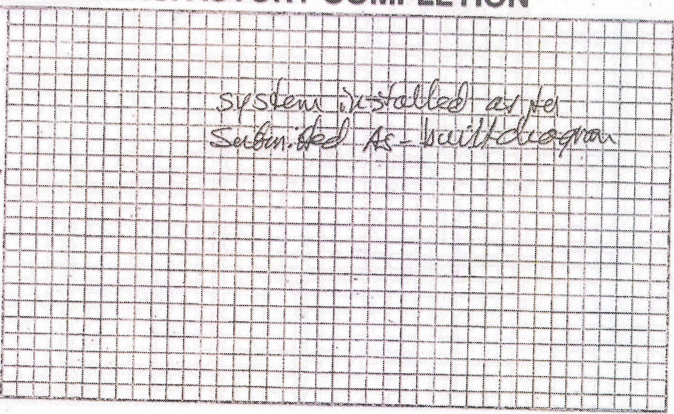 COMPLETION
system installed as per
Submitted As-built diagram